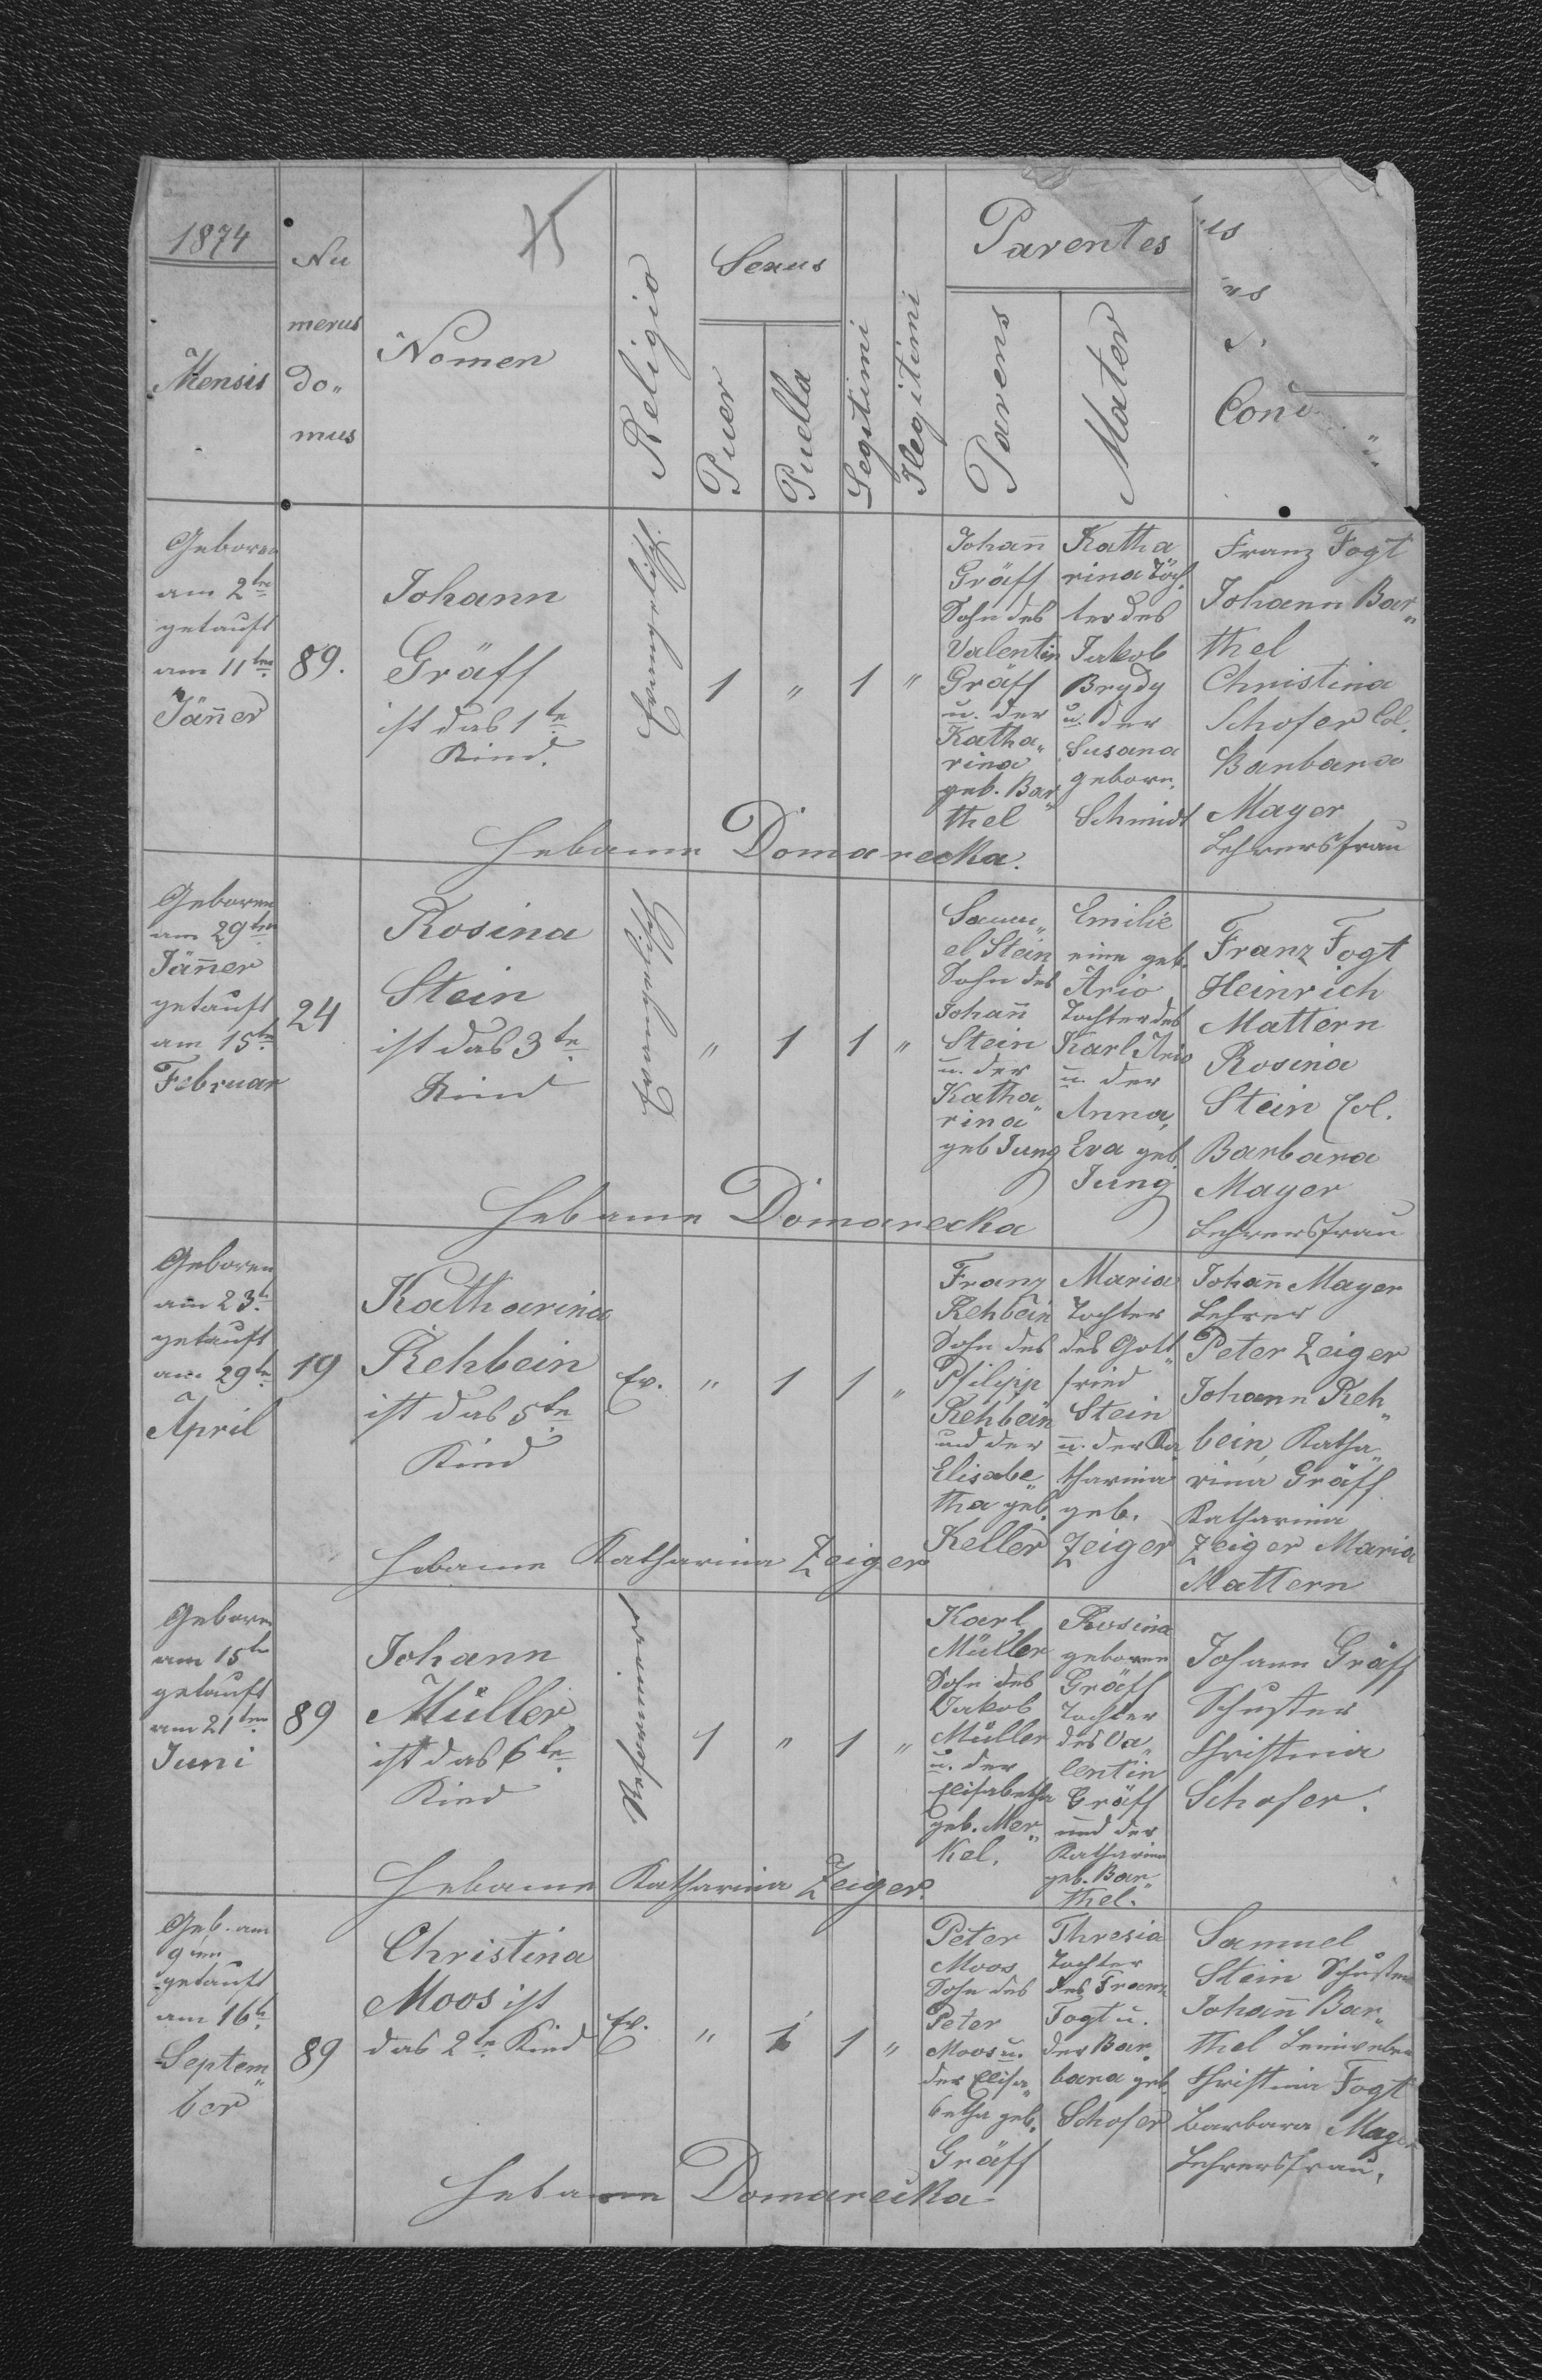 1874
Mensis
Nu
merus
do„
mus
75
Nomen
Religio
Sexus
Puer
Puella
Legitimi
Ilegitimi
Parentes
Parens
Mater
Geboren
am 2te
getauft
am 11ten
Jäner
89.
Johann
Gräff
ist das 1te
Kind.
Evangelisch.
1
„
1
„
Johann
Gräff
Sohn des
Valentin
Gräff
u. der
Katha„
rina
geb. Bar„
thel
Katha
rina Toch„
ter des
Jakob
Brydy
u. der
Susana
geboren.
Schmidt
Franz Fogt
Johann Bar„
thel
Christina
Schofer Col.
Barbara
Mayer
Lehrersfrau
Hebamme Domarecka.
Geboren
am 29ten
Jäner
getauft
am 15te
Februar
24
Rosina
Stein
ist das 3te
Kind
Evangelisch
„
1
1
„
Samu„
el Stein
Sohn des
Johann
Stein
u. der
Katha„
rina
geb Jung
Emilie
eine geb.
Ario
Tochter des
Karl Ario
u. der
Anna,
Eva geb.
Jung
Franz Fogt
Heinrich
Mattern
Rosina
Stein Col.
Barbara
Mayer
Lehrersfrau
Hebamme Domarecka
Geboren
am 23t
getauft
am 29te
April
19
Katharina
Rehbein
ist das 5te
Kind
Ev.
„
1
1
„
Franz
Rehbein
Sohn des
Philipp
Rehbein
und der
Elisabe„
tha geb.
Keller
Maria
Tochter
des Gott„
fried
Stein
u. der Ka
tharina
geb.
Zeiger
Johann Mayer
Lehrer
Peter Zeiger
Johann Reh„
bein, Katha„
rina Gräff
Katharina
Zeiger Maria
Mattern
Hebamme Katharina Zeiger
Geboren
am 15te
getauft
am 21ten
Juni
89
Johann
Müller
ist das 6te
Kind
Reformiert
1
„
1
„
Karl
Müller
Sohn des
Jakob
Müller
u. der
Elisabetha
geb. Mer„
kel.
Rosina
geboren
Gräff
Tochter
des Va„
lentin
Gräff
und der
Katharina
geb. Bar„
thel.
Johann Gräff
Schuster
Christina
Schofer.
Hebamme Katharina Zeiger.
Geb. am
9ten
getauft
am 16t
Septem„
ber
89
Christina
Moos ist
das 2te Kind
Ev.
„
1
1
„
Peter
Moos
Sohn des
Peter
Moos u.
der Elisa„
betha geb.
Gräff
Thresia
Tochter
des Franz
Fogt u.
der Bar„
bara geb.
Schofer
Samuel
Stein Schuster
Johann Bar„
thel Leinweber
Christina Fogt
Barbara Mayer
Lehrersfrau.
Hebamme Domarecka